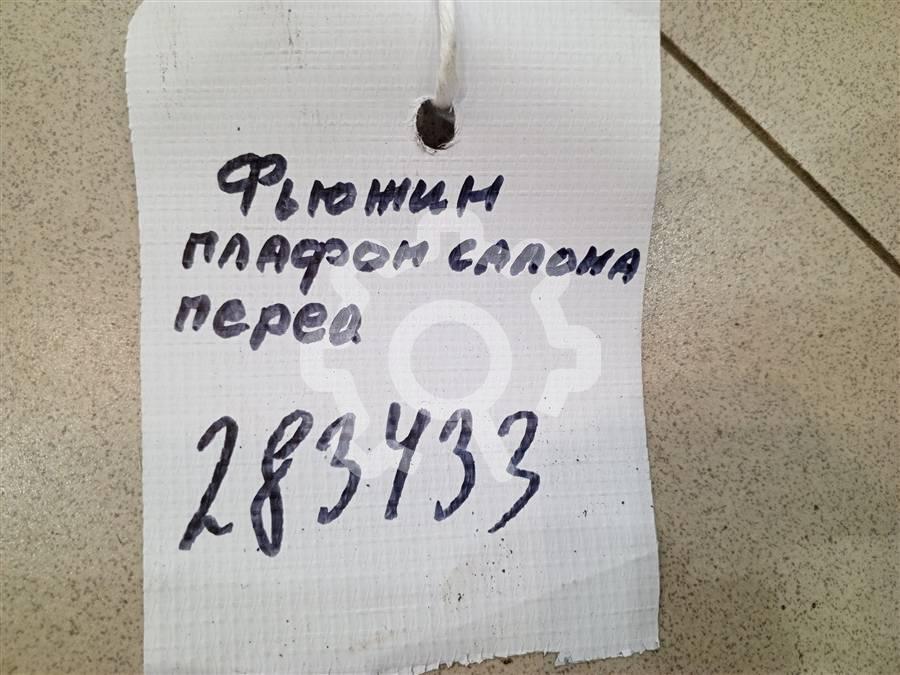 Фьюжин
плафон салона
перед
283433